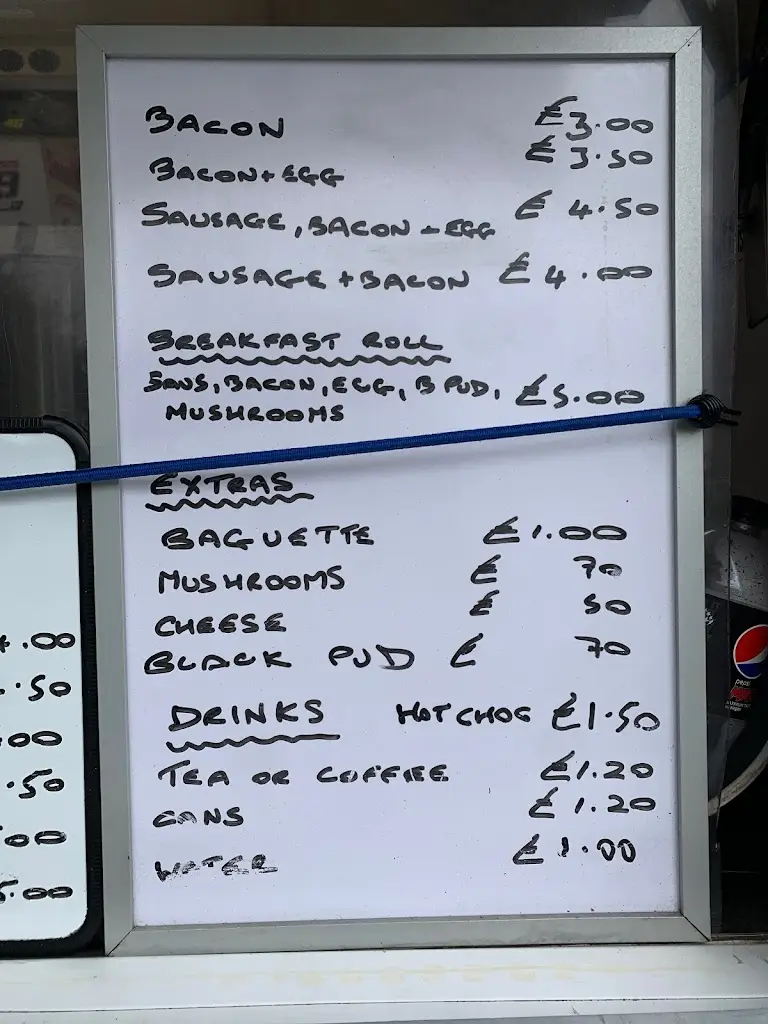 BACON £3.00
BACON + EGG £3.50
SAUSAGE, BACON + EGG £4.50
SAUSAGE + BACON £4.00
BREAKFAST ROLL
SAUS, BACON, EGG, B PUD, £5.00
MUSHROOMS
EXTRAS
BAGUETTE £1.00
MUSHROOMS £ 70
CHEESE £ 50
BLACK PUD £ 70
DRINKS HOT CHOC £1.50
TEA OR COFFEE £1.20
CANS £1.20
WATER £1.00
.00
.50
.00
.50
.00
5.00
pepsi